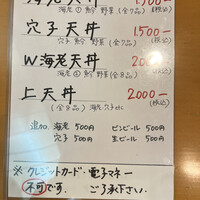 海老天丼 1,700-
海老① 魚介 野菜(全7品) (税込)
穴子天丼 1,500-
穴子 魚介 野菜(全7品) (税込)
W海老天丼
海老② 魚介 野菜(全8品)
上天丼 2000-
(全8品) 海老 穴子etc (税込)
追加 海老 500円 ビンビール 500円
穴子 500円 生ビール 500円
※クレジットカード・電子マネー
不可です。 ご了承下さい。